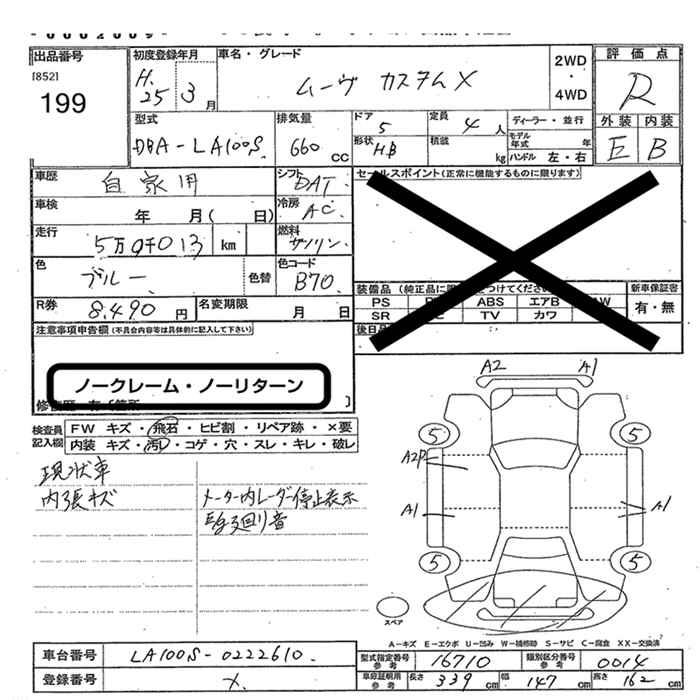 0002009
出品番号 初度登録年月 車名・グレード 2WD・4WD 評価点
[852]
199 H.25 3月 ムーヴ カスタムX R
型式 排気量 ドア 5 定員 4人 ディーラー・並行 外装 内装
DBA-LA100S 660cc 形状 H.B 積載 kg モデル年式 年 ハンドル 左・右 E B
車歴 自家用 シフト DAT セールスポイント(正常に機能するものに限ります)
車検 年 月( 日) 冷房 AC
走行 5万9千013 km 燃料 ガソリン
色 ブルー 色替 色コード B70 装備品 新車保証書
PS ABS エアB AW 有・無
R券 8,490円 名変期限 月 日 SR TV カワ
注意事項申告欄(不具合内容等は具体的に記入して下さい) 後日
ノークレーム・ノーリターン
検査員記入欄 FW キズ・飛石・ヒビ割・リペア跡・×要
内装 キズ・汚レ・コゲ・穴・スレ・キレ・破レ
現状車
内張キズ メーター内レーダー停止表示
廻り音
A2 A1
5 5
A2P
A1 A1
5 5
スペア
A-キズ E-エクボ U-凹み W-補修跡 S-サビ C-腐食 XX-交換済
車台番号 LA100S-0222610 型式指定番号 参考 16710 類別区分番号 参考 0014
登録番号 × 車庫証明用 参考 長さ 339cm 幅 147cm 高さ 162cm